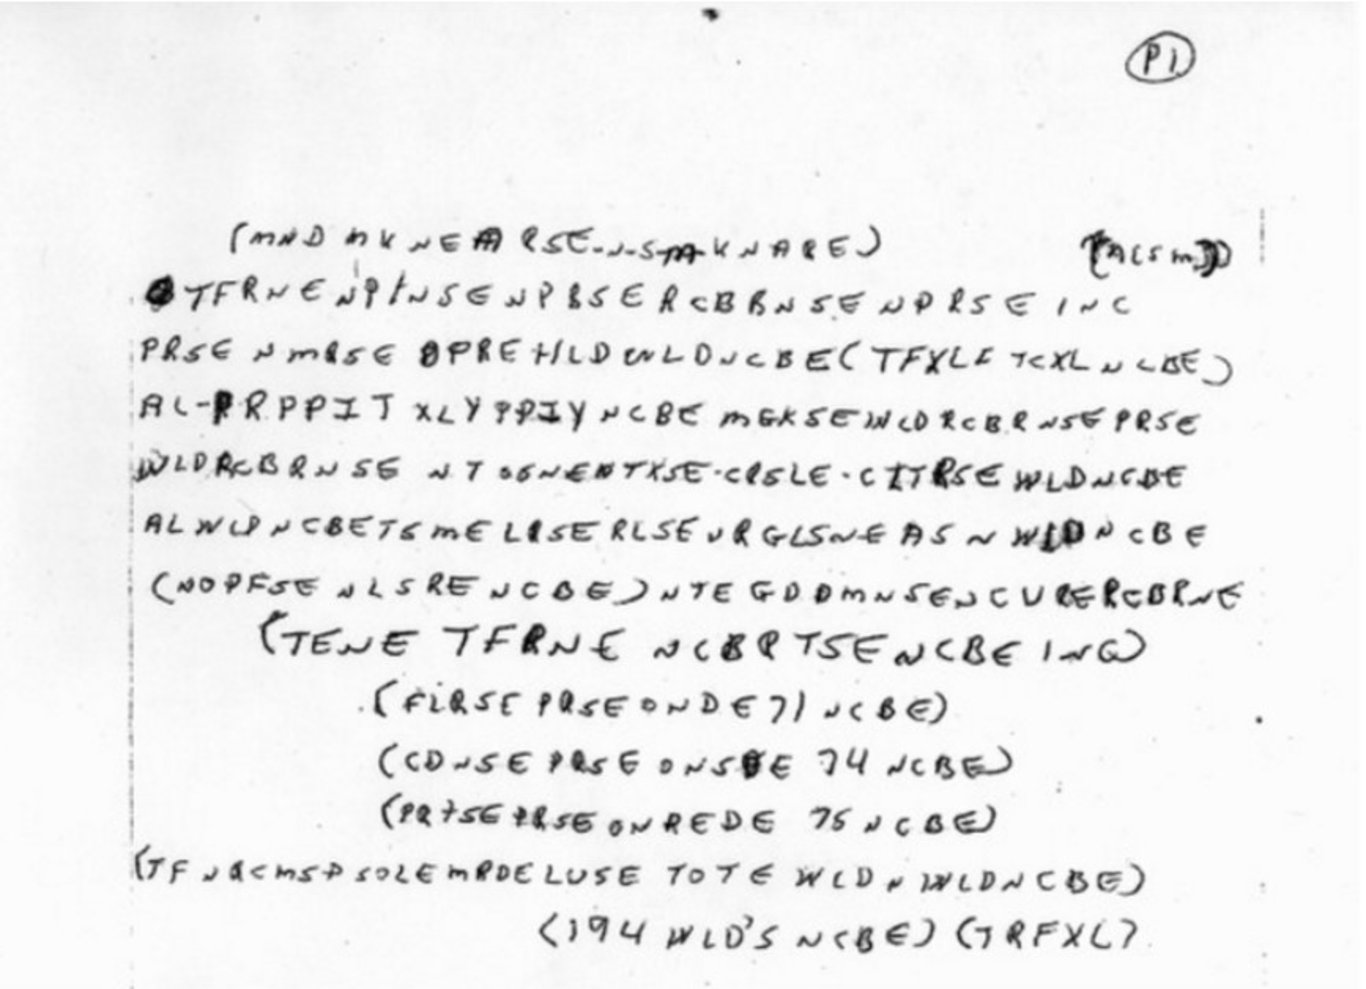 P1
(MND MKNEARSE-N-S-M-KNARE) (ACSM)
TFRNENPINSENPBSERCBBNSENPRSEINC
PRSENMRSEOPREHLDWLDNCBE(TFXLF TCXLNCBE)
AL-PRPPITXLYPPIYNCBEMGKSEWLDRCBRNSEPRSE
WLDRCBRNSENTSGNENTXSE-CRSLE-CITRSEWLDNCBE
ALWLPNCBETSMELRSERLSEURGLSNEASNWLDNCBE
(NOPFSENLSRENCBE)NTEGDDMNSENCURERCBRNE
(TENE TFRNE NCBRTSENCBEING)
(FLRSEPRSEONDE71NCBE)
(CDNSEPRSEONSDE74NCBE)
(PRTSEPRSEONREDE75NCBE)
(TFNRCMSPSOLEMRDELUSETOTEWLDNWLDNCBE)
(194WLD'SNCBE)(TRFXL)